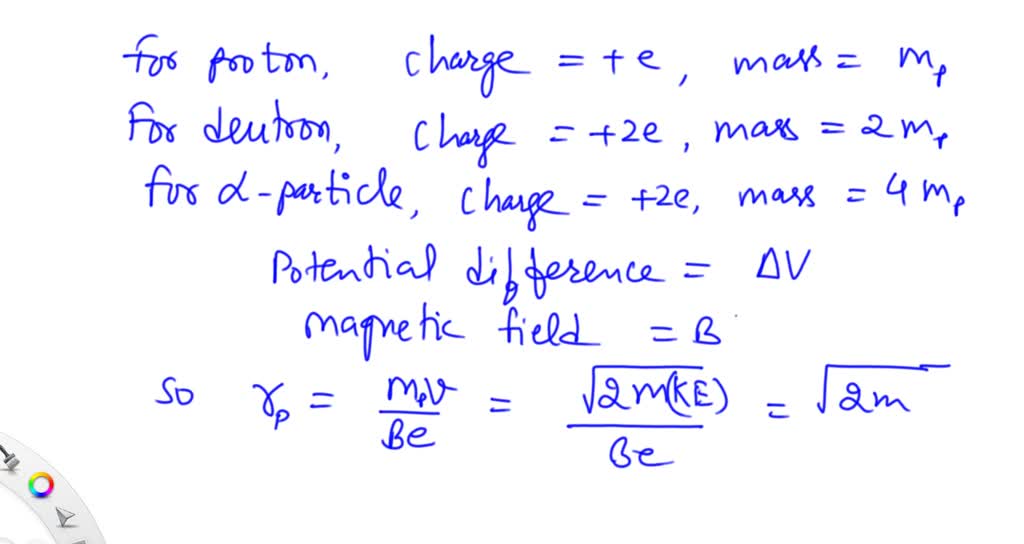 for proton, charge = +e, mass = mp
For deutron, charge = +2e, mass = 2mp
for α-particle, charge = +2e, mass = 4mp
Potential difference = ΔV
magnetic field = B
So rp = mpv/Be = √2m(KE)/Be = √2m